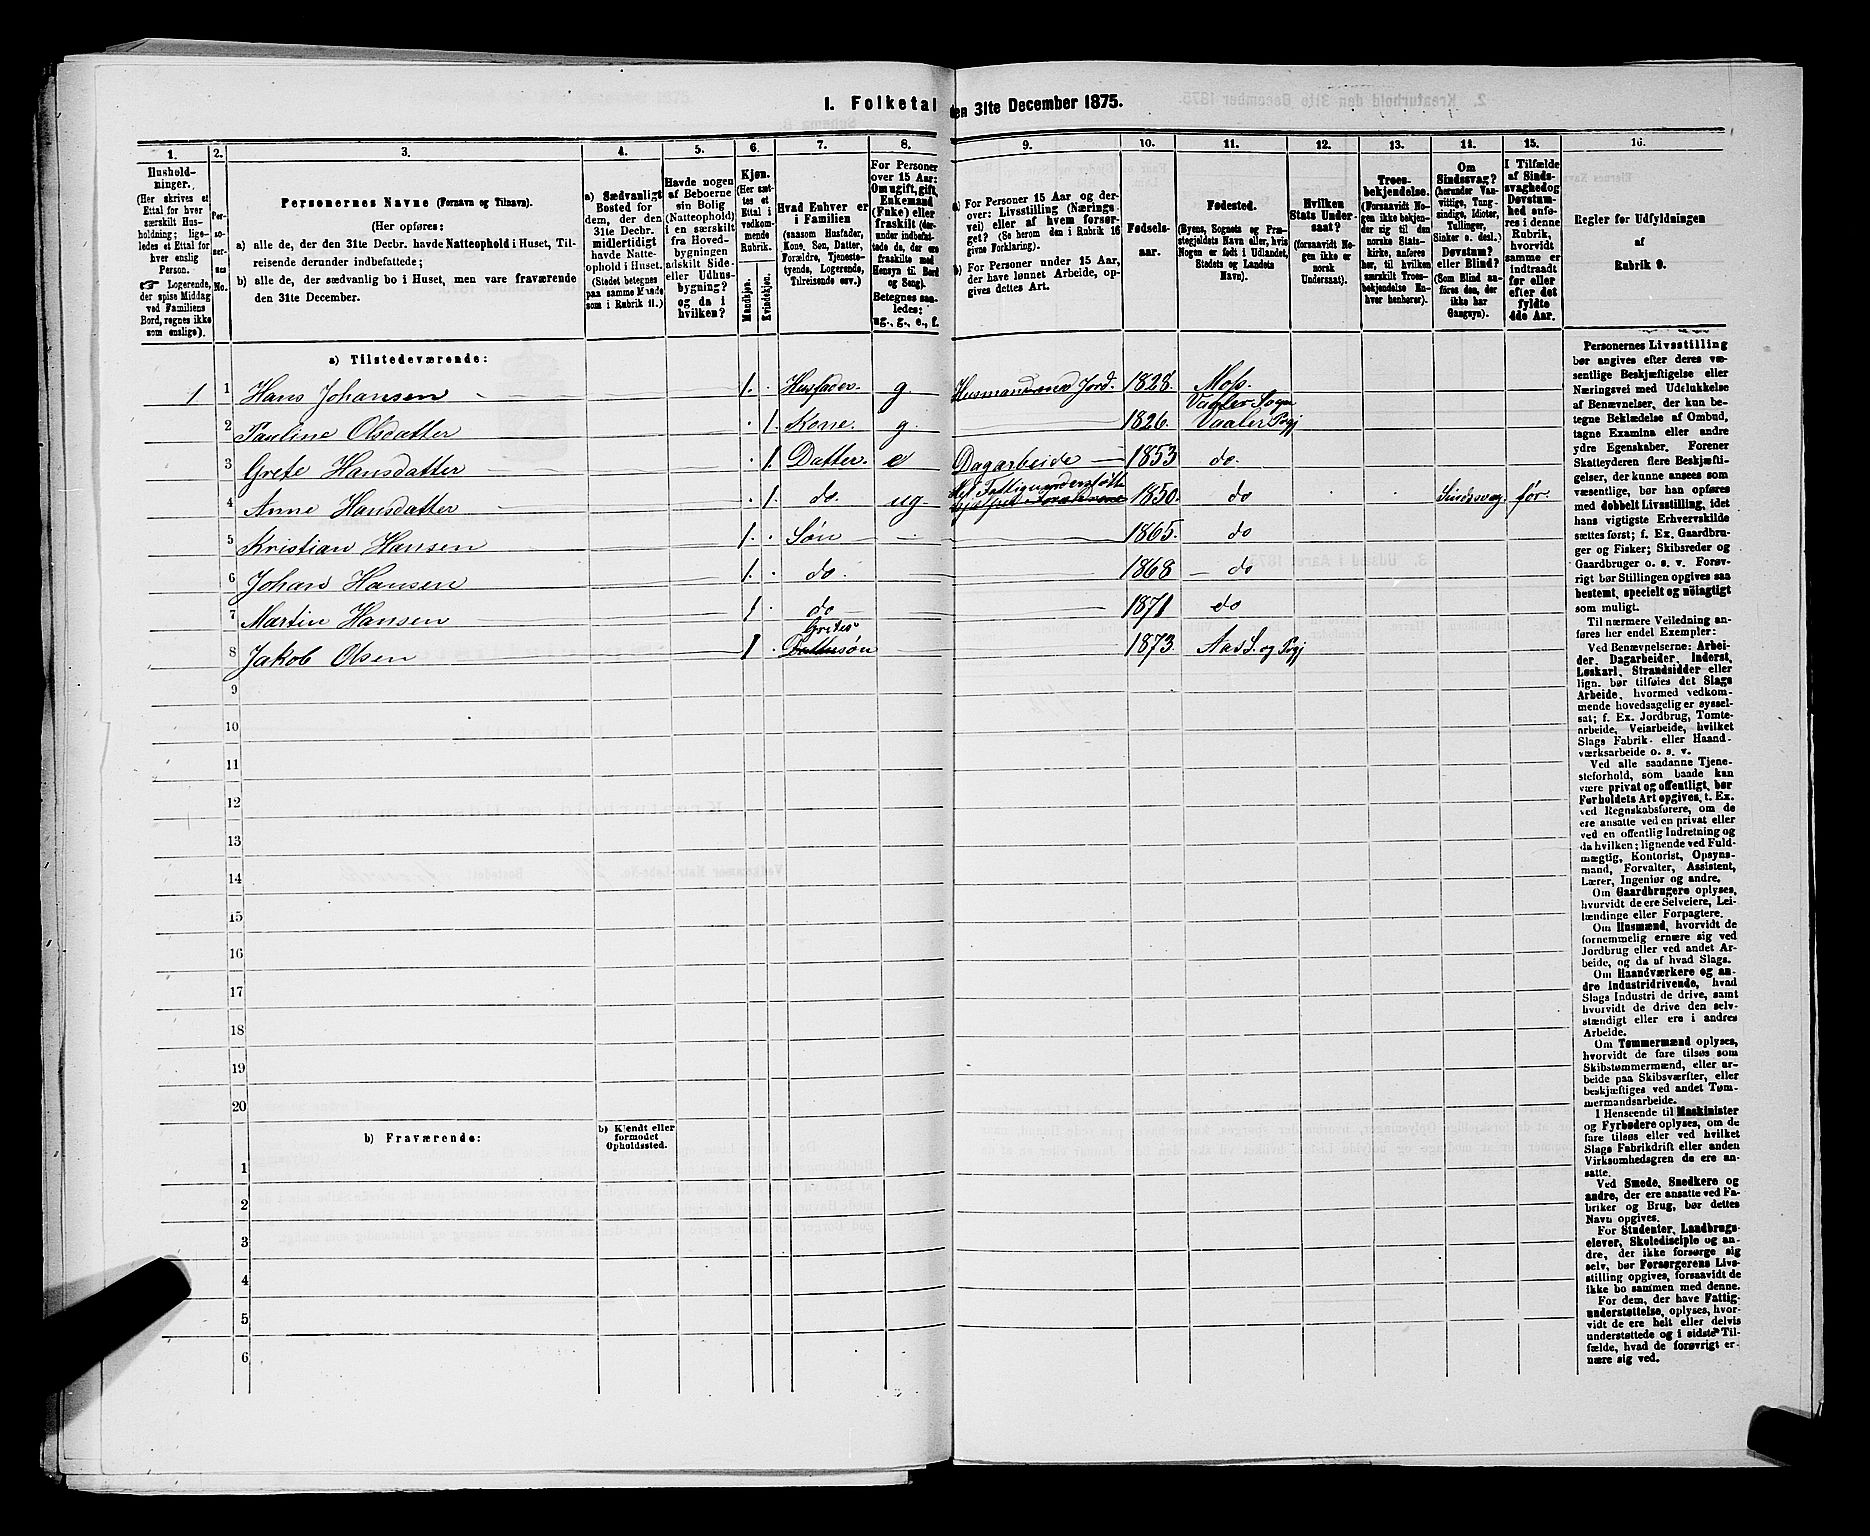 I. Folketal den 31te December 1875.
1. 2. 3. 4. 5. 6. 7. 8. 9. 10. 11. 12. 13. 14. 15. 16.
Hushold-
ninger.
(Her skrives et
Ettal for hver
særskilt Hus-
holdning; lige-
ledes et Ettal for
hver enslig
Person.
☞ Logerende,
der spise Middag
ved Familiens
Bord, regnes ikke
som enslige).
Per-
so-
ner-
nes
No.
Personernes Navne (Fornavn og Tilnavn).
(Her opføres:
a) alle de, der den 31te Decbr. havde Natteophold i Huset, Til-
reisende derunder indbefattede;
b) alle de, der sædvanlig bo i Huset, men vare fraværende
den 31te December.
a) Sædvanligt
Bosted for
dem, der den
31te Decbr.
midlertidigt
havde Natte-
ophold i Huset.
(Stedet betegnes
paa samme Maade
som i Rubrik 11.)
Havde nogen
af Beboerne
sin Bolig
(Natteophold)
i en særskilt
fra Hoved-
bygningen
adskilt Side-
eller Udhus-
bygning?
og da i
hvilken?
Kjøn.
(Her sæt-
tes et
Ettal i
vedkom-
mende
Rubrik.
Mandkjøn.
Kvindekjøn.
Hvad Enhver er
i Familien
(saasom Husfader,
Kone, Søn, Datter,
Forældre, Tjeneste-
tyende, Logerende,
Tilreisende osv.)
For Personer
over 15 Aar:
Om ugift, gift,
Enkemand
(Enke) eller
fraskilt (der-
under indbefat-
tede de, der ere
fraskilte med
Hensyn til Bord
og Seng).
Betegnes saa-
ledes:
ug., g., e., f.
a) For Personer 15 Aar og der-
over: Livsstilling (Nærings-
vei) eller af hvem forsør-
get? (Se herom den i Rubrik 16
givne Forklaring).
b) For Personer under 15 Aar,
der have lønnet Arbeide, op-
gives dettes Art.
Fødsels-
aar.
Fødested.
(Byens, Sognets og Præ-
stegjeldets Navn eller, hvis
Nogen er født i Udlandet,
Stedets og Landets
Navn).
Hvilken
Stats Under-
saat?
(forsaavidt No-
gen ikke er
norsk
Undersaat).
Troes-
bekjendelse.
(Forsaavidt No-
gen ikke bekjen-
der sig til den
norske Stats-
kirke, anføres
her, til hvilken
særskilt Troes-
bekjendelse En-
hver henhører).
Om
Sindssvag?
(herunder Van-
vittige, Tung-
sindige, Idioter,
Tullinger,
Sinker o. desl.)
Døvstum?
eller Blind?
(Som Blind an-
føres den, der
ikke har
Gangsyn).
I Tilfælde
af Sinds-
svaghed og
Døvstum-
hed anfø-
res i denne
Rubrik,
hvorvidt
samme er
indtraadt
før eller
efter det
fyldte
4de Aar.
Regler for Udfyldningen
af
Rubrik 9.
a) Tilstedeværende:
1 1 Hans Johansen 1. Husfader. g Husmand med Jord. 1828. Moss.
2 Pauline Olsdatter 1. Kone. g. 1826. Vaaler Sogn Vaaler Prgj
3 Grete Hansdatter 1. Datter. e Dagarbeide 1853 do.
4 Anne Hansdatter 1. do. ug Fattigunderstøttet 1850. do Sindssvag. før.
5 Kristian Hansen 1. Søn 1865. do
6 Johan Hansen 1. do. 1868 do
7 Martin Hansen 1 do 1871 do
8 Jakob Olsen 1 Gretes Dattersøn 1873. Aas S. og Prgj
9
10
11
12
13
14
15
16
17
18
19
20
b) Fraværende:
b) Kjendt eller
formodet
Opholdssted.
1
2
3
4
5
6
Personernes Livsstilling
bør angives efter deres væ-
sentlige Beskjæftigelse eller
Næringsvei med Udelukkelse
af Benævnelser, der kun be-
tegne Beklædelse af Ombud,
tagne Examina eller andre
ydre Egenskaber. Forener
Skatteyderen flere Beskjæfti-
gelser, der kunne ansees som
væsentlige, bør han opføres
med dobbelt Livsstilling, idet
hans vigtigste Erhvervskilde
sættes først; f. Ex. Gaardbru-
ger og Fisker; Skibsreder og
Gaardbruger o. s. v. Forøv-
rigt bør Stillingen opgives saa
bestemt, specielt og nøiagtigt
som muligt.
Til nærmere Veiledning an-
føres her endel Exempler:
Ved Benævnelserne: Arbei-
der, Dagarbeider, Inderst,
Løskarl, Strandsidder eller
lign. bør tilføies det Slags
Arbeide, hvormed vedkom-
mende hovedsagelig er syssel-
sat; f. Ex. Jordbrug, Tomte-
arbeide, Veiarbeide, hvilket
Slags Fabrik- eller Haand-
værksarbeide o. s. v.
Ved alle saadanne Tjene-
steforhold, som baade kan
være privat og offentligt, bør
Forholdets Art opgives, t. Ex.
ved Regnskabsførere, om de
ere ansatte ved en privat eller
ved en offentlig Indretning og
da hvilken; lignende ved Fuld-
mægtig, Kontorist, Opsyns-
mand, Forvalter, Assistent,
Lærer, Ingeniør og andre.
Om Gaardbrugere oplyses,
hvorvidt de ere Selveiere, Lei-
lændinge eller Forpagtere.
Om Husmænd, hvorvidt de
fornemmelig ernære sig ved
Jordbrug eller ved andet Ar-
beide, og da af hvad Slags.
Om Haandværkere og an-
dre Industridrivende, hvad
Slags Industri de drive, samt
hvorvidt de drive den selv-
stændigt eller ere i andres
Arbeide.
Om Tømmermænd oplyses,
hvorvidt de fare tilsøs som
Skibstømmermænd, eller ar-
beide paa Skibsværfter, eller
beskjæftiges ved andet Tøm-
mermandsarbeide.
I Henseende til Maskinister
og Fyrbødere oplyses, om de
fare tilsøs eller ved hvilket
Slags Fabrikdrift eller anden
Virksomhedsgren de ere an-
satte.
Ved Smede, Snedkere og
andre, der ere ansatte ved Fa-
briker og Brug, bør dettes
Navn opgives.
For Studenter, Landbrugs-
elever, Skoledisciple og an-
dre, der ikke forsørge sig
selv, bør Forsørgerens Livs-
stilling opgives, forsaavidt de
ikke bo sammen med denne.
For dem, der have Fattig-
understøttelse, oplyses, hvor-
vidt de ere helt eller delvis
understøttede og i sidste Til-
fælde, hvad de forøvrigt er-
nære sig ved.